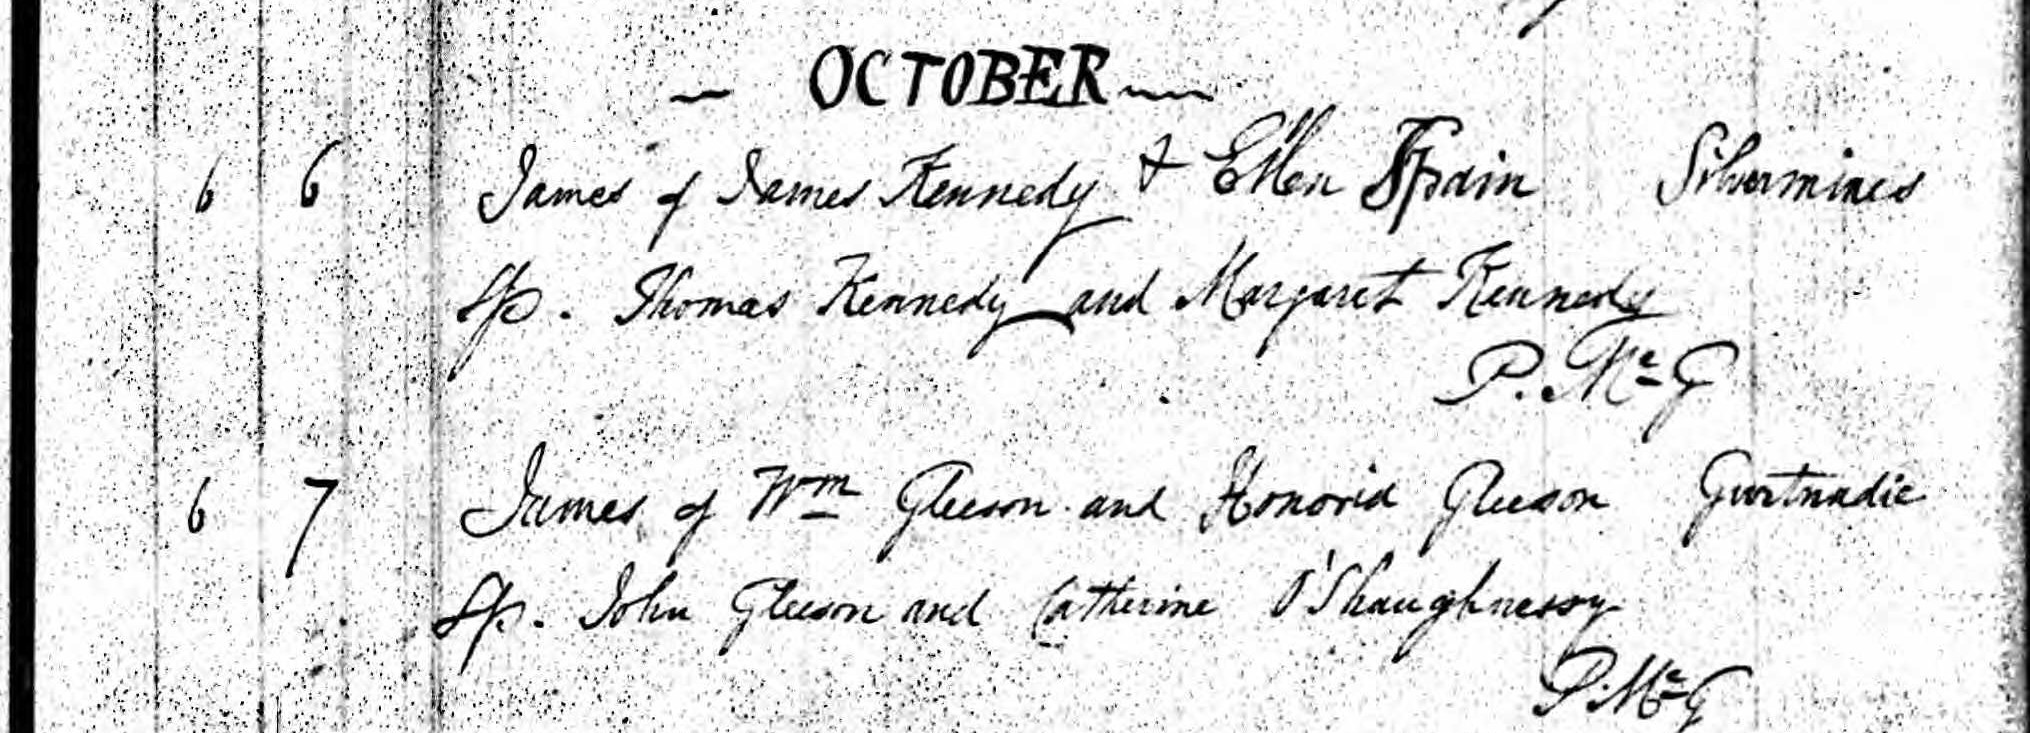 — OCTOBER —
6 6 James of James Kennedy & Ellen Spain Silvermines
Sp. Thomas Kennedy and Margaret Kennedy
P. McG
6 7 James of Wm Gleeson and Honoria Gleeson Gurtnadie
Sp. John Gleeson and Catherine O'Shaughnessy
P. McG